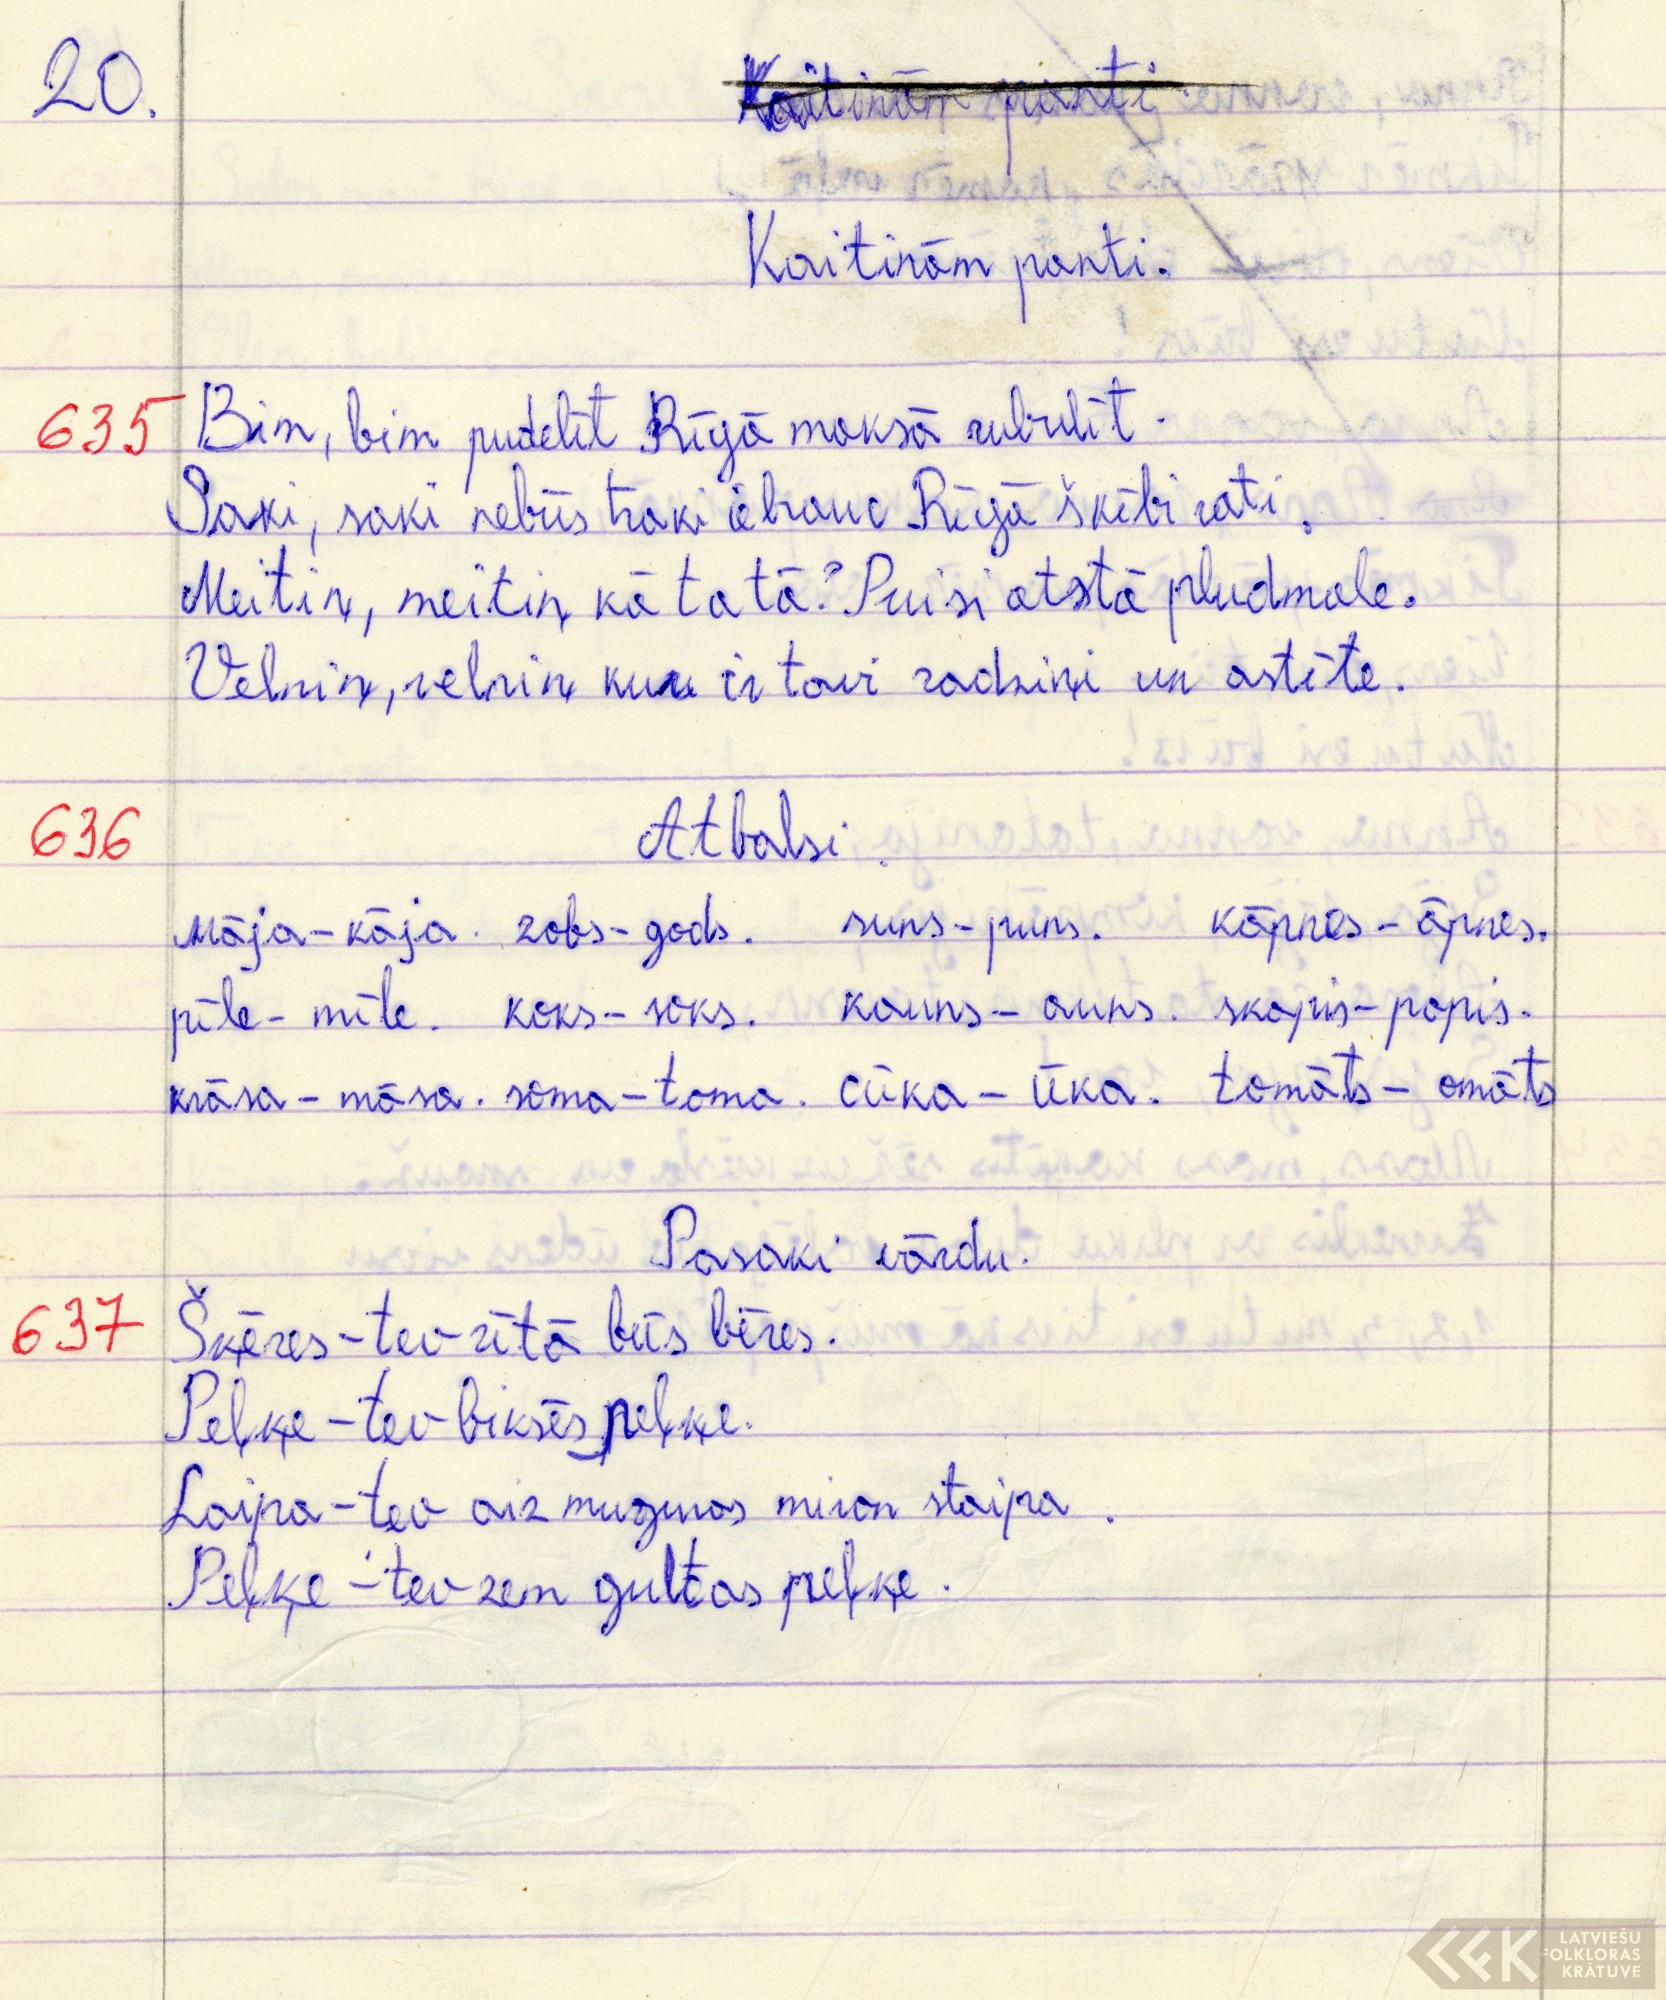 20.
Kaitinām panti.
Kaitinām panti.
635 Bim, bim pudelīt Rīgā maksā rubulīt.
Saki, saki nebūs traki iebrauc Rīgā šķībi rati.
Meitiņ, meitiņ kā ta tā? Puisi atstā pludmale.
Velniņ, velniņ kur ir tavi radziņi un astīte.
636 Atbalsi.
Māja - kāja. zobs - gods. suns - puns. kāpnes - āpnes.
pīle - mīle. koks - soks. kauns - auns. skapis - papis.
krāsa - māsa. soma - toma. cūka - ūka. tomāts - omāts
Pasaki vārdu.
637 Šķēres - tev rītā būs bēres.
Peļķe - tev biksēs peļķe.
Laipa - tev aiz muguras miron staipa.
Peļķe - tev zem gultas peļķe.
LATVIEŠU
FOLKLORAS
KRĀTUVE